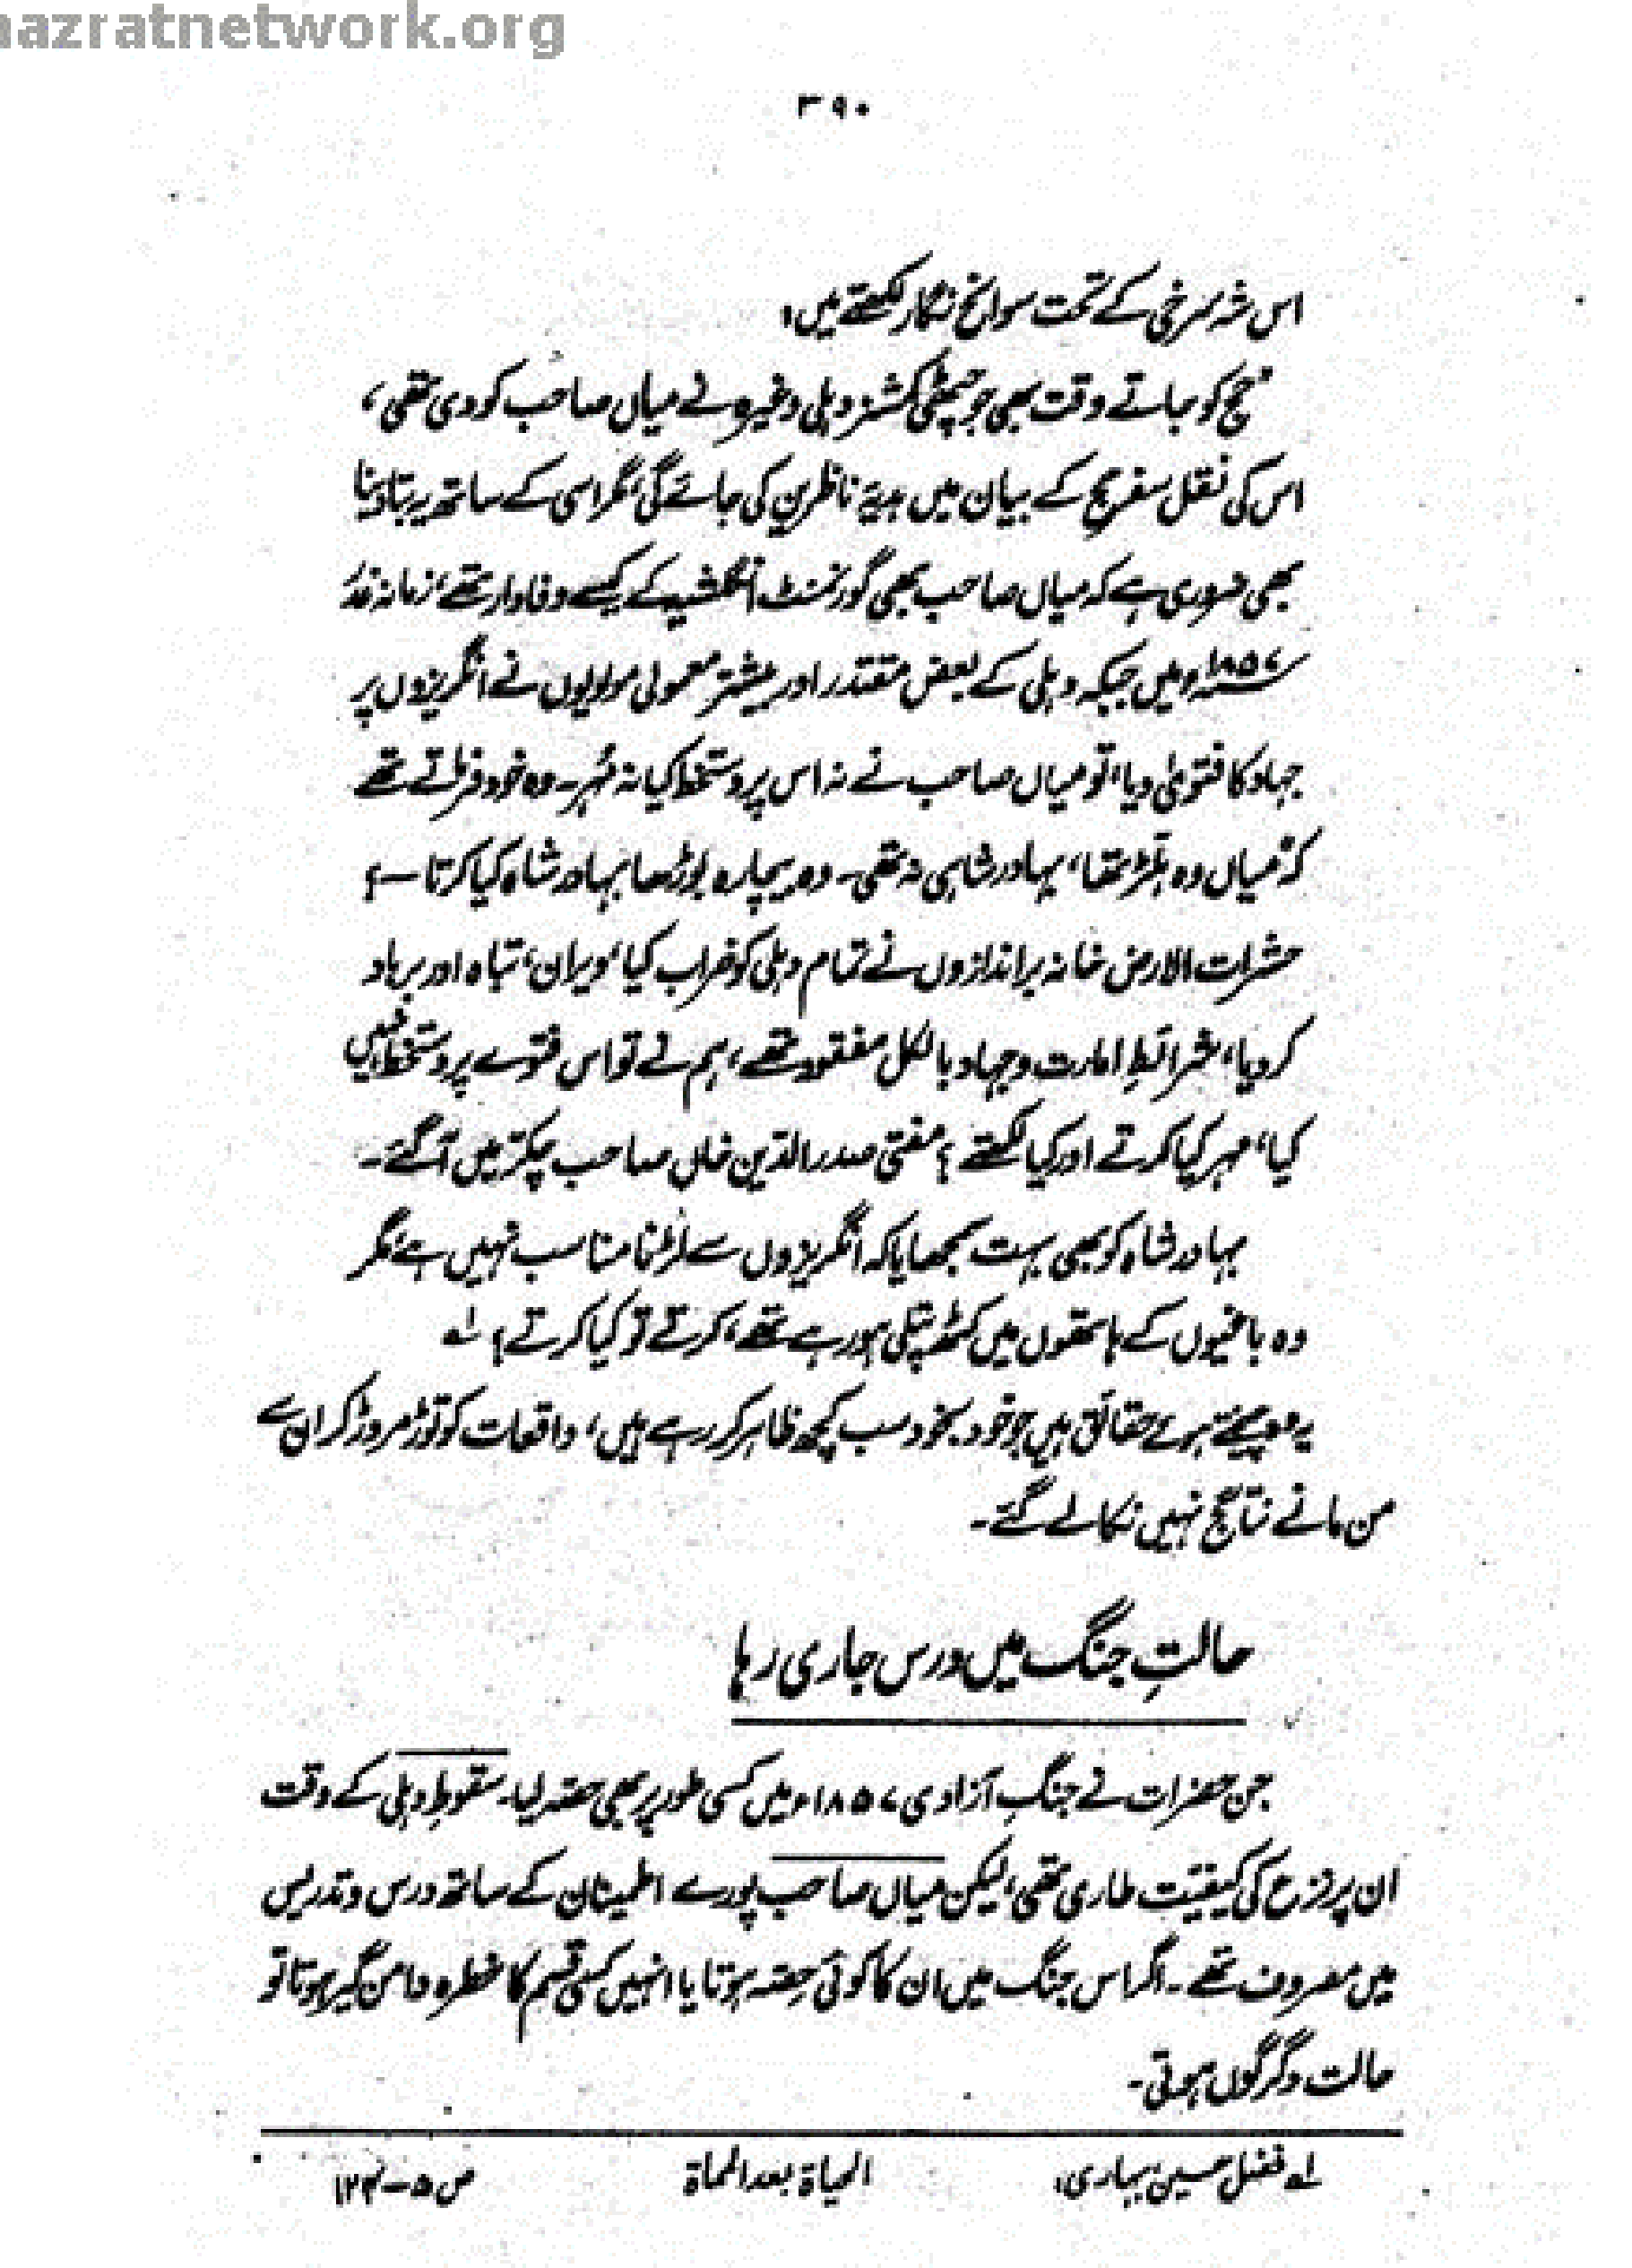 hazratnetwork.org
۳۹۰
اس شہ سرخی کے تحت سوانح نگار لکھتے ہیں:
"حج کو جاتے وقت بھی جو چٹھی کمشنر دہلی وغیرہ نے میاں صاحب کو دی تھی،
اس کی نقل سفر حج کے بیان میں ہدیۂ ناظرین کی جائے گی، مگر اسی کے ساتھ یہ بتا دینا
بھی ضروری ہے کہ میاں صاحب بھی گورنمنٹ انگلشیہ کے کیسے وفادار تھے، زمانہ غدر
۱۸۵۷ء میں جبکہ دہلی کے بعض مقتدر اور بیشتر معمولی مولویوں نے انگریزوں پر
جہاد کا فتویٰ دیا، تو میاں صاحب نے نہ اس پر دستخط کیا نہ مُہر۔ وہ خود فرماتے تھے
کہ "میاں وہ ہلّڑ تھا، بہادر شاہی نہ تھی۔ وہ بیچارہ بوڑھا بہادر شاہ کیا کرتا ــ؟
حشرات الارض خانہ براندازوں نے تمام دہلی کو خراب کیا، ویران، تباہ اور برباد
کر دیا، شرائطِ امارت و جہاد بالکل مفقود تھے، ہم نے تو اس فتوے پر دستخط نہیں
کیا، مہر کیا کرتے اور کیا لکھتے؟ مفتی صدر الدّین خاں صاحب چکّر میں آ گئے۔
بہادر شاہ کو بھی بہت سمجھایا کہ انگریزوں سے لڑنا مناسب نہیں ہے، مگر
وہ باغیوں کے ہاتھوں میں کٹھ پتلی ہو رہے تھے، کرتے تو کیا کرتے؟ لہ
یہ وہ چیختے ہوئے حقائق ہیں جو خود بخود سب کچھ ظاہر کر رہے ہیں، واقعات کو توڑ مروڑ کر ان سے
من مانے نتائج نہیں نکالے گئے۔
حالتِ جنگ میں درس جاری رہا
جن حضرات نے جنگِ آزادی ۱۸۵۷ء میں کسی طور پر بھی حصّہ لیا۔ سقوطِ دہلی کے وقت
ان پر نزع کی کیفیّت طاری تھی، لیکن میاں صاحب پورے اطمینان کے ساتھ درس و تدریس
میں مصروف تھے۔ اگر اس جنگ میں ان کا کوئی حِصّہ ہوتا یا انہیں کسی قسم کا خطرہ دامن گیر ہوتا تو
حالت دگرگوں ہوتی۔
لہ فضل حسین بہاری، الحیاۃ بعد المماۃ ص ۵-۱۲۴